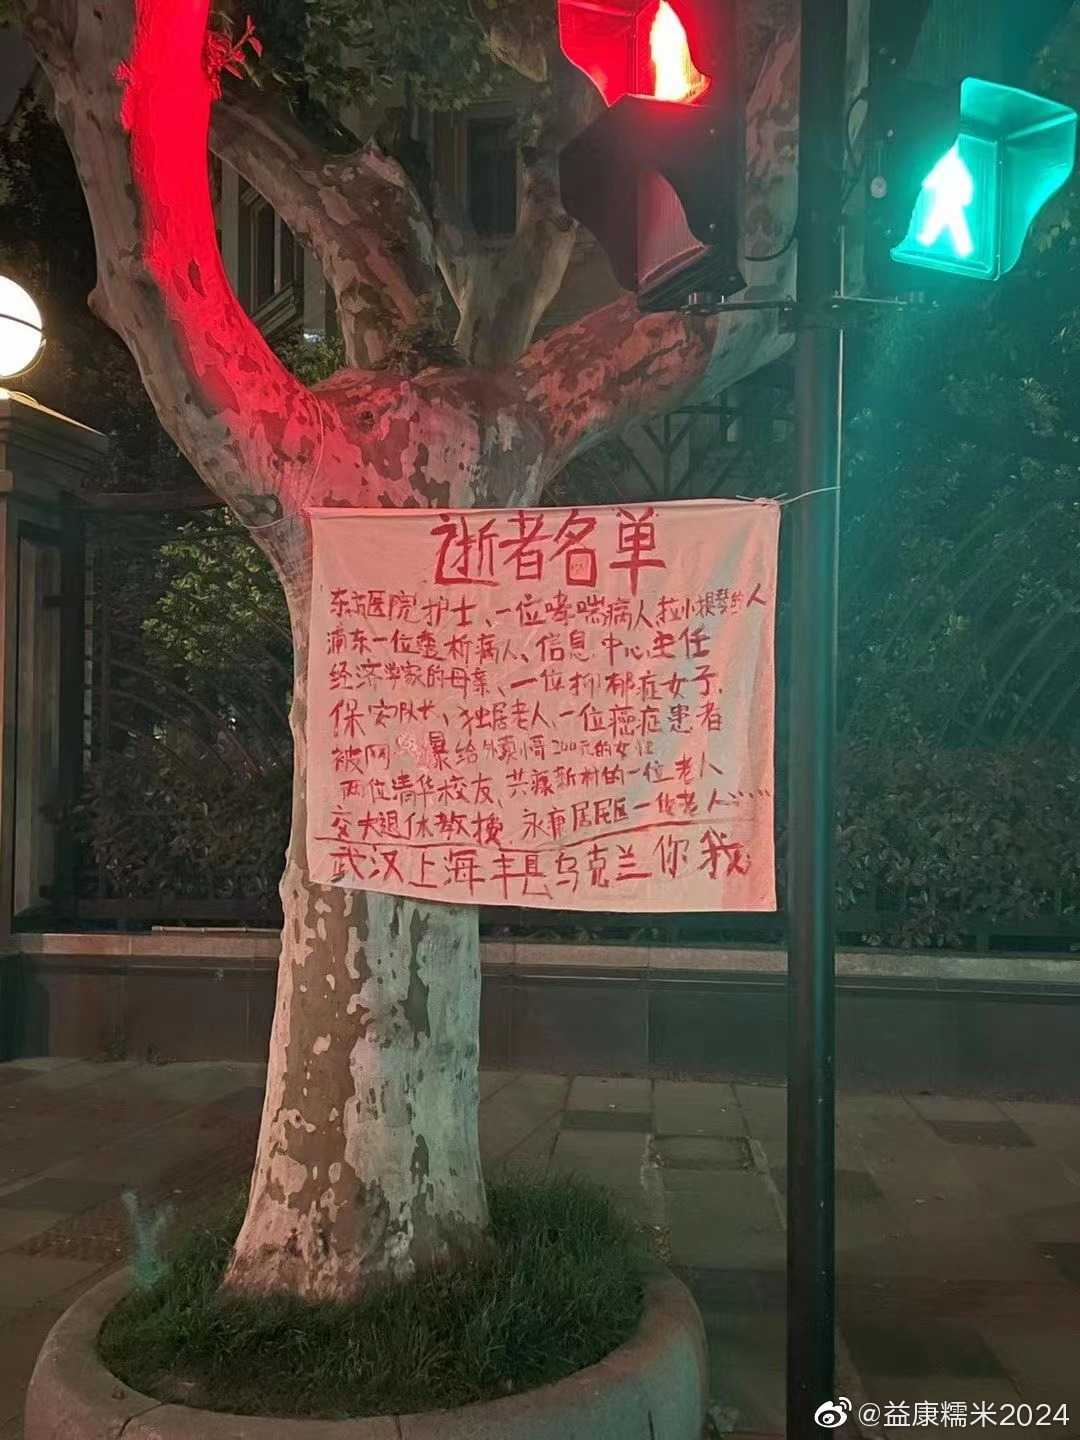 逝者名单
东方医院护士、一位哮喘病人拉小提琴的人
浦东一位透析病人、信息中心主任
经济学家的母亲、一位抑郁症女子、
保安队长、独居老人、一位癌症患者
被网暴给外卖小哥200元的女性
两位清华校友、共康新村的一位老人
交大退休教授、永康居民区一位老人……
武汉上海丰县乌克兰你我
@益康糯米2024